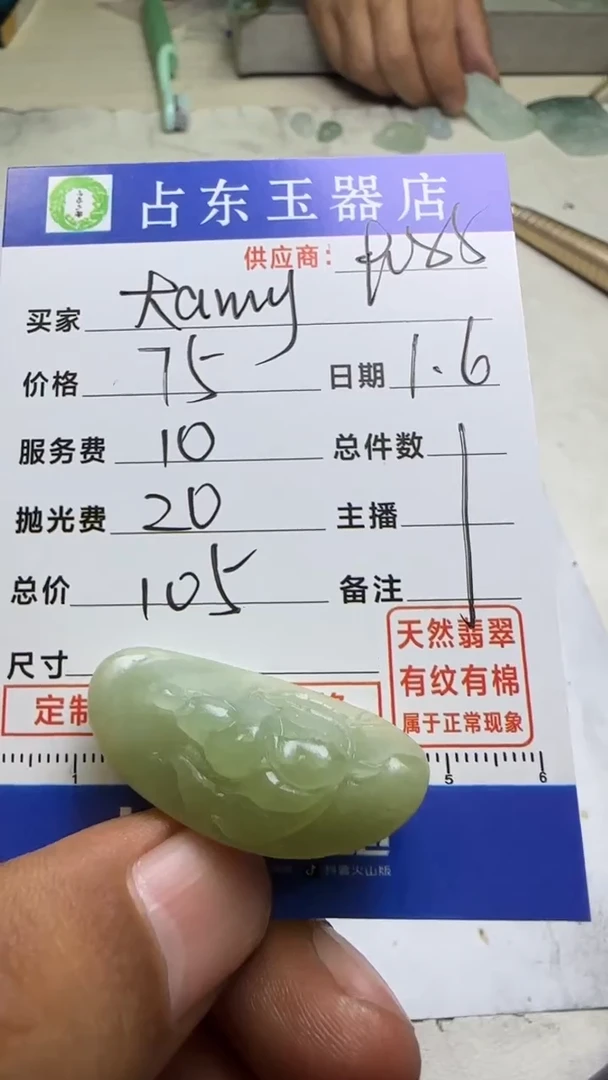 占东玉器店
供应商：
买家 Ramy
价格 75 日期 1.6
服务费 10 总件数
抛光费 20 主播
总价 105 备注
天然翡翠
尺寸
有纹有棉
定制
属于正常现象
1 5 6
抖音火山版